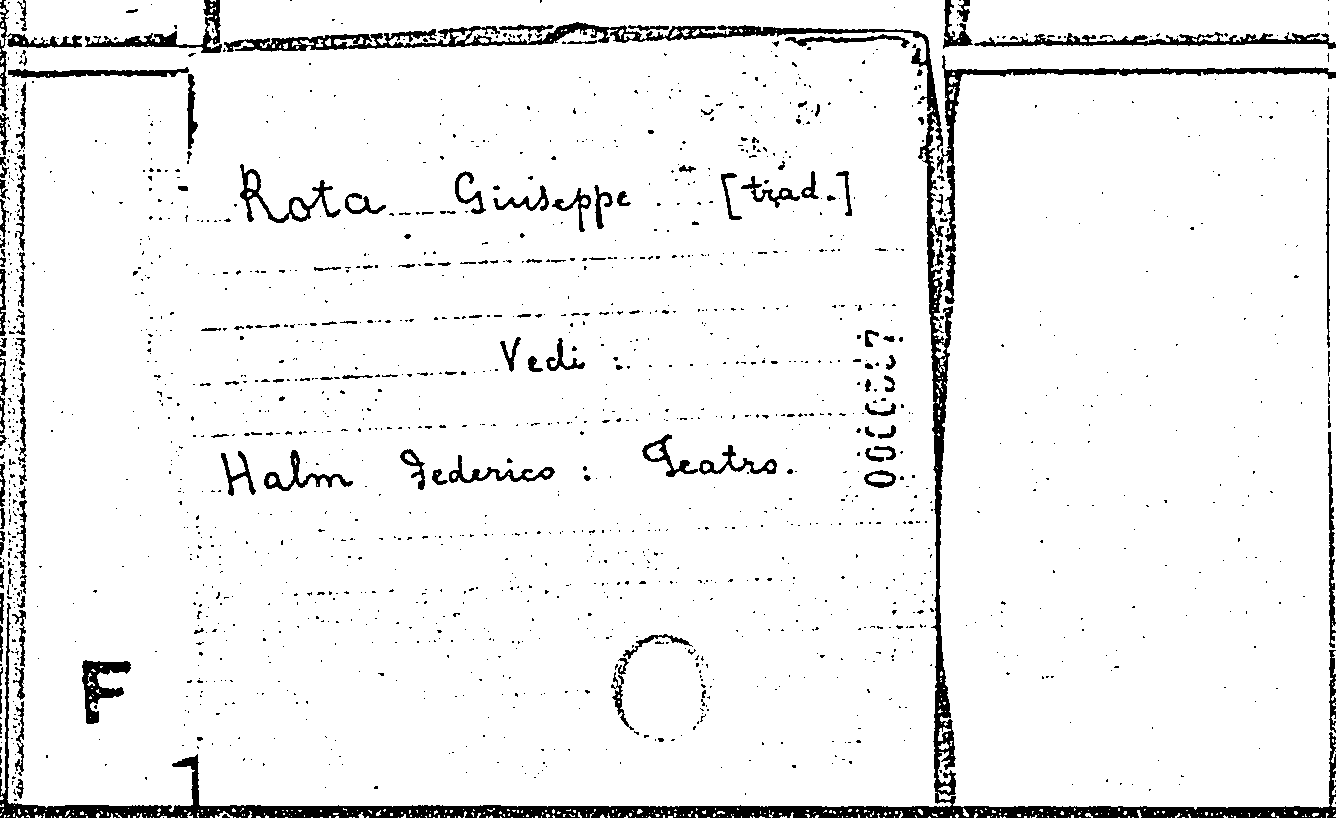 Rota Giuseppe [trad.]
Vedi :
Halm Federico : Teatro.
F